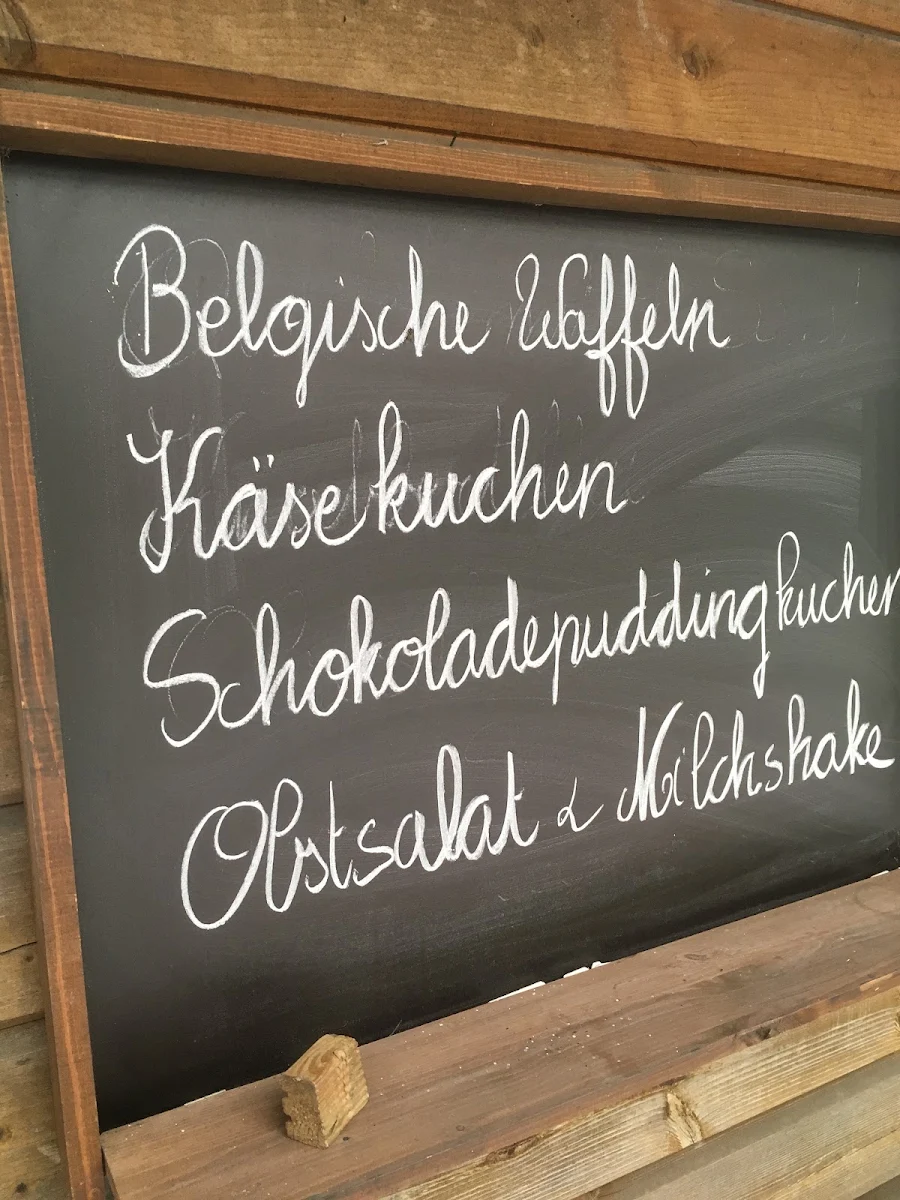 Belgische Waffeln
Käsekuchen
Schokoladepuddingkuchen
Obstsalat & Milchshake